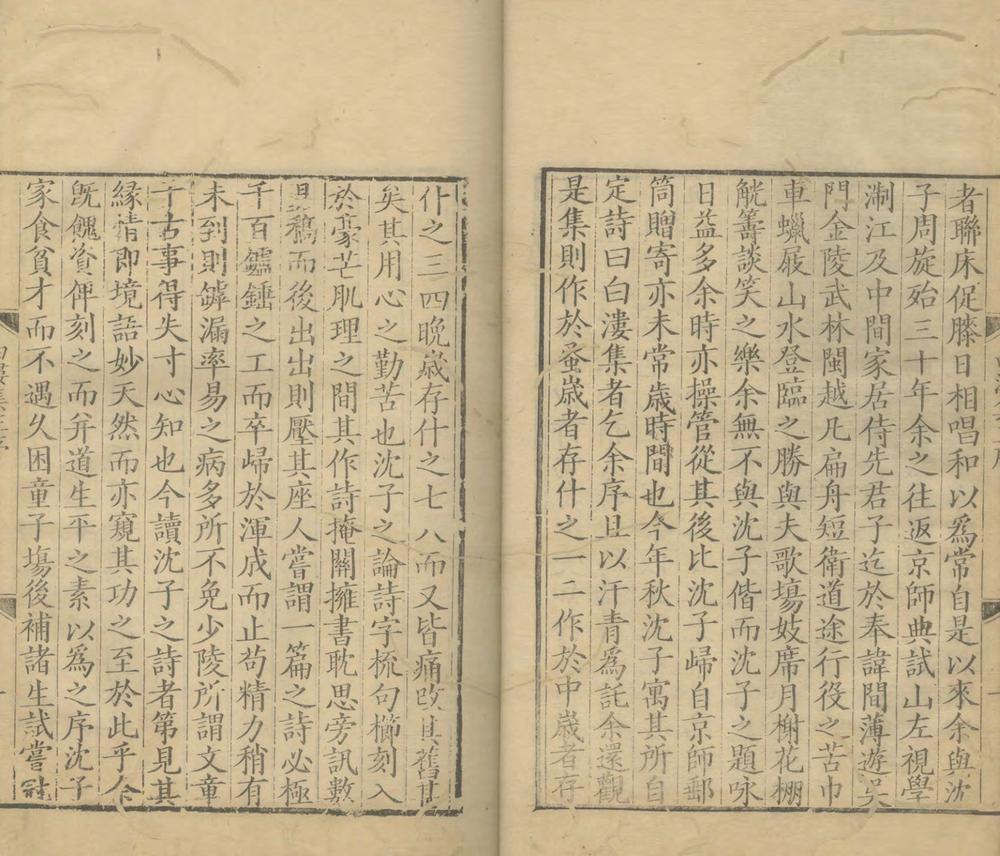 者聯床促膝日相唱和以爲常自是以來余與沈
子周旋殆三十年余之往返京師典試山左視學
淛江及中間家居侍先君子迄於奉諱間薄遊吳
門金陵武林閩越凡扁舟短衛道途行役之苦巾
車蠟屐山水登臨之勝與夫歌塲妓席月榭花棚
觥籌談笑之樂余無不與沈子偕而沈子之題咏
日益多余時亦操管從其後比沈子歸自京師郵
筒贈寄亦未常歲時間也今年秋沈子寓其所自
定詩曰白漊集者乞余序且以汗青爲託余還觀
是集則作於蚤歲者存什之一二作於中歲者存
什之三四晚歲存什之七八而又皆痛改其舊
矣其用心之勤苦也沈子之論詩字梳句櫛刻入
於豪芒肌理之間其作詩掩關擁書耽思旁訊數
易稿而後出出則壓其座人嘗謂一篇之詩必極
千百鑪錘之工而卒歸於渾成而止苟精力稍有
未到則罅漏率易之病多所不免少陵所謂文章
千古事得失寸心知也今讀沈子之詩者第見其
緣情即境語妙天然而亦窺其功之至於此乎余
旣醵資俾刻之而并道生平之素以爲之序沈子
家食貧才而不遇久困童子塲後補諸生試嘗冠